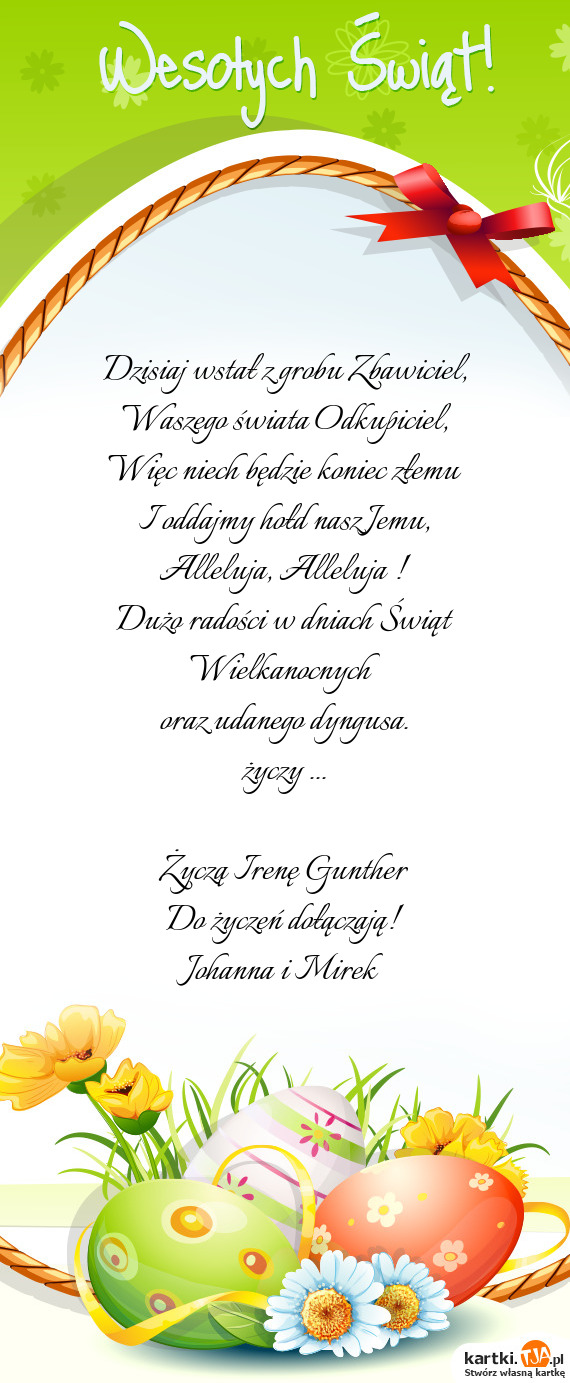 Wesołych Świąt!
Dzisiaj wstał z grobu Zbawiciel,
Waszego świata Odkupiciel,
Więc niech będzie koniec złemu
I oddajmy hołd nasz Jemu,
Alleluja, Alleluja !
Dużo radości w dniach Świąt
Wielkanocnych
oraz udanego dyngusa.
życzy ...
Życzą Irenę Gunther
Do życzeń dołączają!
Johanna i Mirek
kartki.TJA.pl
Stwórz własną kartkę